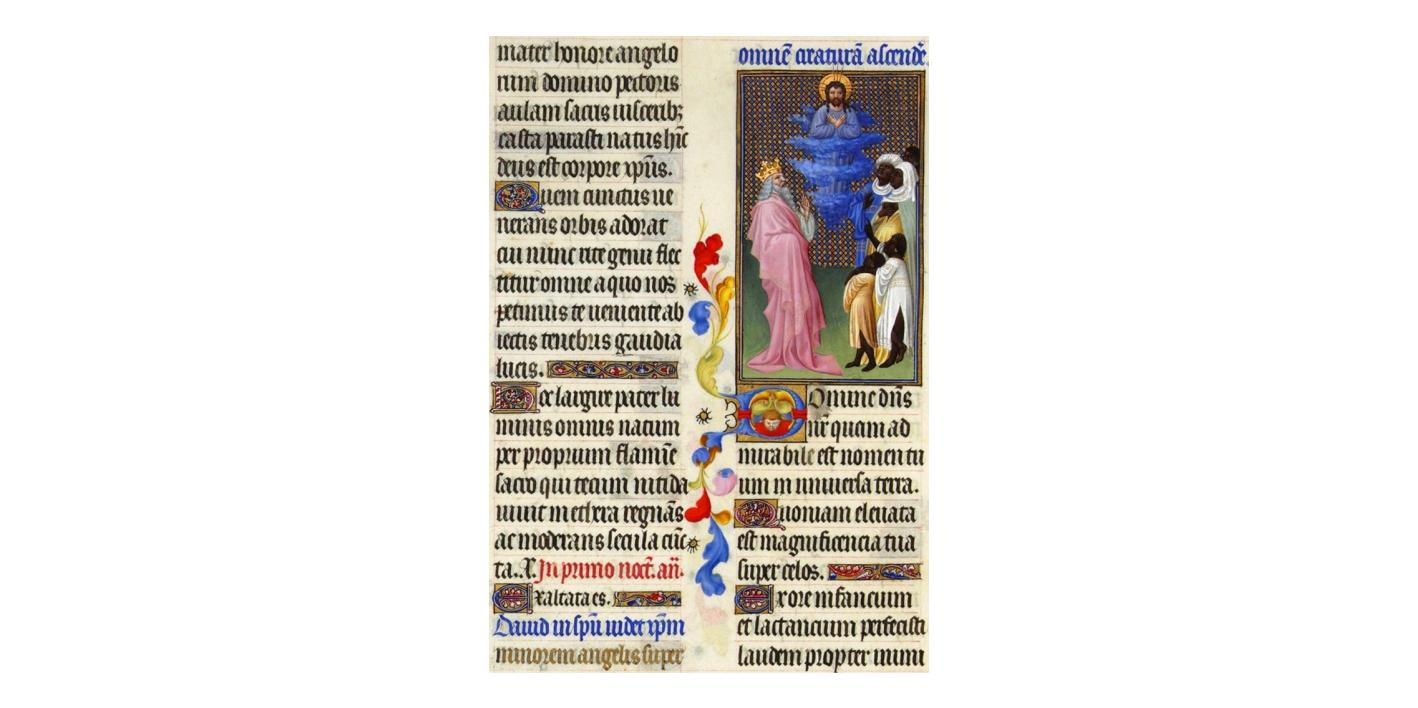 mater honore angelo
rum domino pectoris
aulam sacris uiscerib;
casta parasti natus hi̅c
deus est corpore xp̅us.
Quem cunctus ue
nerans orbis adorat
cui nunc rite genu flec
titur omne a quo nos
petimus te ueniente ab
iectis tenebris gaudia
lucis.
oc largire pater lu
minis omnis natum
per proprium flami̅e
sacro qui tecum nitida
uiuit in ethera regna̅s
ac moderans secula cu̅c
ta. In primo noct. an̅.
Exaltata es.
Dauid in sp̅u uidet xp̅m
minorem angelis super
omne̅ creatura̅ ascende̅.
Domine dn̅s
nr̅ quam ad
mirabile est nomen tu
um in uniuersa terra.
Quoniam eleuata
est magnificencia tua
super celos.
Ex ore infancium
et lactancium perfecisti
laudem propter inimi